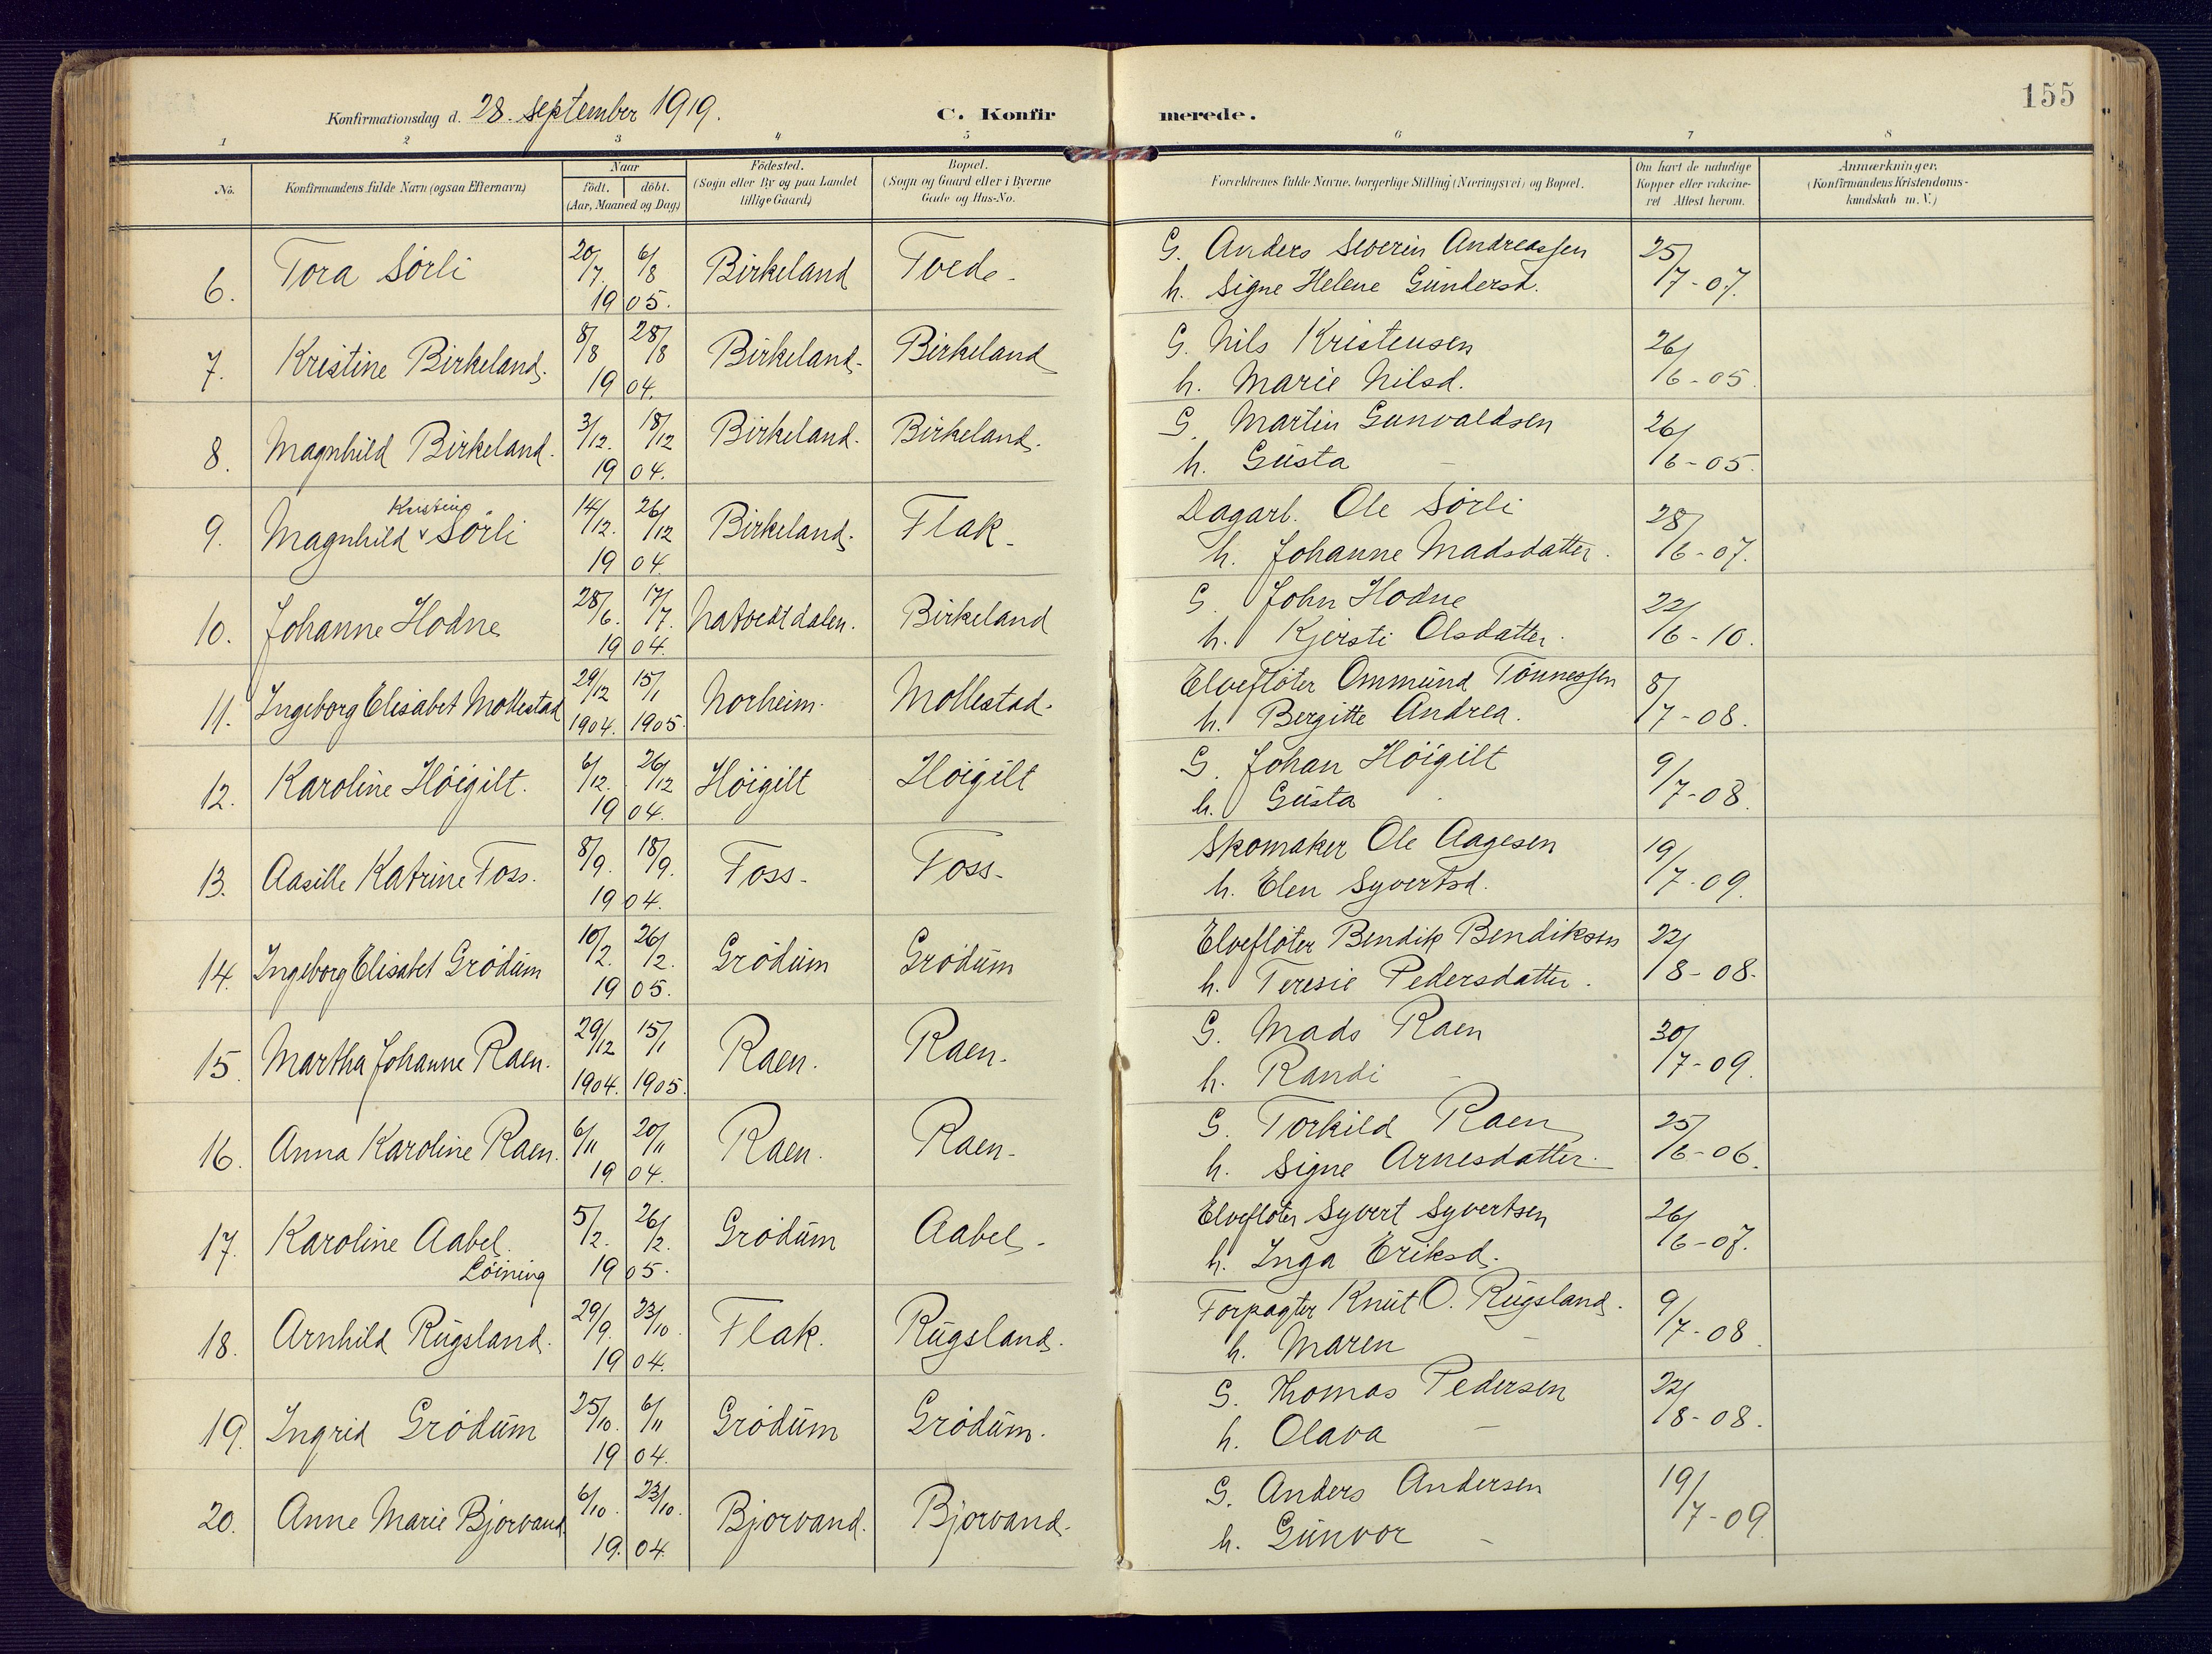 155
Konfirmationsdag d. 28. september 1919.
C. Konfirmerede.
1 2 3 4 5 6 7 8
No.
Konfirmandens fulde Navn (ogsaa Efternavn)
Naar
født. døbt.
(Aar, Maaned og Dag)
Fødested.
(Sogn eller By og paa Landet
tillige Gaard)
Bopæl.
(Sogn og Gaard eller i Byerne
Gade og Hus-No.
Forældrenes fulde Navne, borgerlige Stilling (Næringsvei) og Bopæl.
Om havt de naturlige
Kopper eller vakcine-
ret Attest herom.
Anmærkninger.
(Konfirmandens Kristendoms-
kundskab m. V.)
6. Tora Sörli 20/7. 6/8 1905. Birkeland Tveds- G. Anders Severin Andreassen 25/7-07.
h. Signe Helene Gundersd.
7. Kristine Birkeland. 8/8 28/8 1904. Birkeland- Birkeland G. Nils Kristensen 26/6-05.
h. Marie Nilsd.
8. Magnhild Birkeland. 3/12. 18/12 1904. Birkeland. Birkeland. G. Martin Gunvaldsen 26/6-05.
h. Gusta -
Kristine
9. Magnhild v Sörli 14/12. 26/12 1904. Birkeland. Flak- Dagarb. Ole Sörli 28/6-07.
h. Johanne Madsdatter.
10. Johanne Hodne 28/6. 17/7. 1904. Natvedtdalen. Birkeland G. John Hodne 22/6-10.
h. Kjersti Olsdatter.
11. Ingeborg Elisabet Mollestad 29/12 15/1 1904. 1905. Norheim. Mollestad. Elvefløter Ommund Tönnessen 8/7-08.
h. Bergitte Andrea.
12. Karoline Höigilt. 6/12. 26/12 1904. Höigilt Höigilt G. Johan Höigilt 9/7-08.
h. Gusta
13. Aasille Katrine Foss. 8/9. 18/9. 1904. Foss- Foss- Skomaker Ole Aagesen 19/7-09.
h. Elen Syvertsd.
14. Ingeborg Elisabet Grödum 10/2. 26/2. 1905. Grödum Grödum Elvefløter Bendik Bendiksen 22/8-08.
h. Teresie Pedersdatter.
15. Martha Johanne Raen. 29/12 15/1 1904. 1905. Raen. Raen. G. Mads Raen 30/7-09.
h. Randi -
16. Anna Karoline Raen. 6/11 20/11 1904. Raen. Raen- G. Torkild Raen 25/6-06.
h. Signe Arnesdatter.
17. Karoline Aabel. 5/2. 26/2. 1905. Grödum Aabel- Elvefløter Syvert Syvertsen 26/6-07.
Löining
h. Inga Eriksd.
18. Arnhild Rugsland. 29/9. 23/10. 1904. Flak. Rugsland. Forpagter Knut O. Rugsland. 9/7-08.
h. Maren -
19. Ingrid Grödum 25/10. 6/11 1904. Grödum Grödum. G. Thomas Pedersen 22/8-08.
h. Olava -
20. Anne Marie Bjorvand 6/10. 23/10. 1904. Bjorvand. Bjorvand. G. Anders Andersen 19/7-09
h. Gunvor -